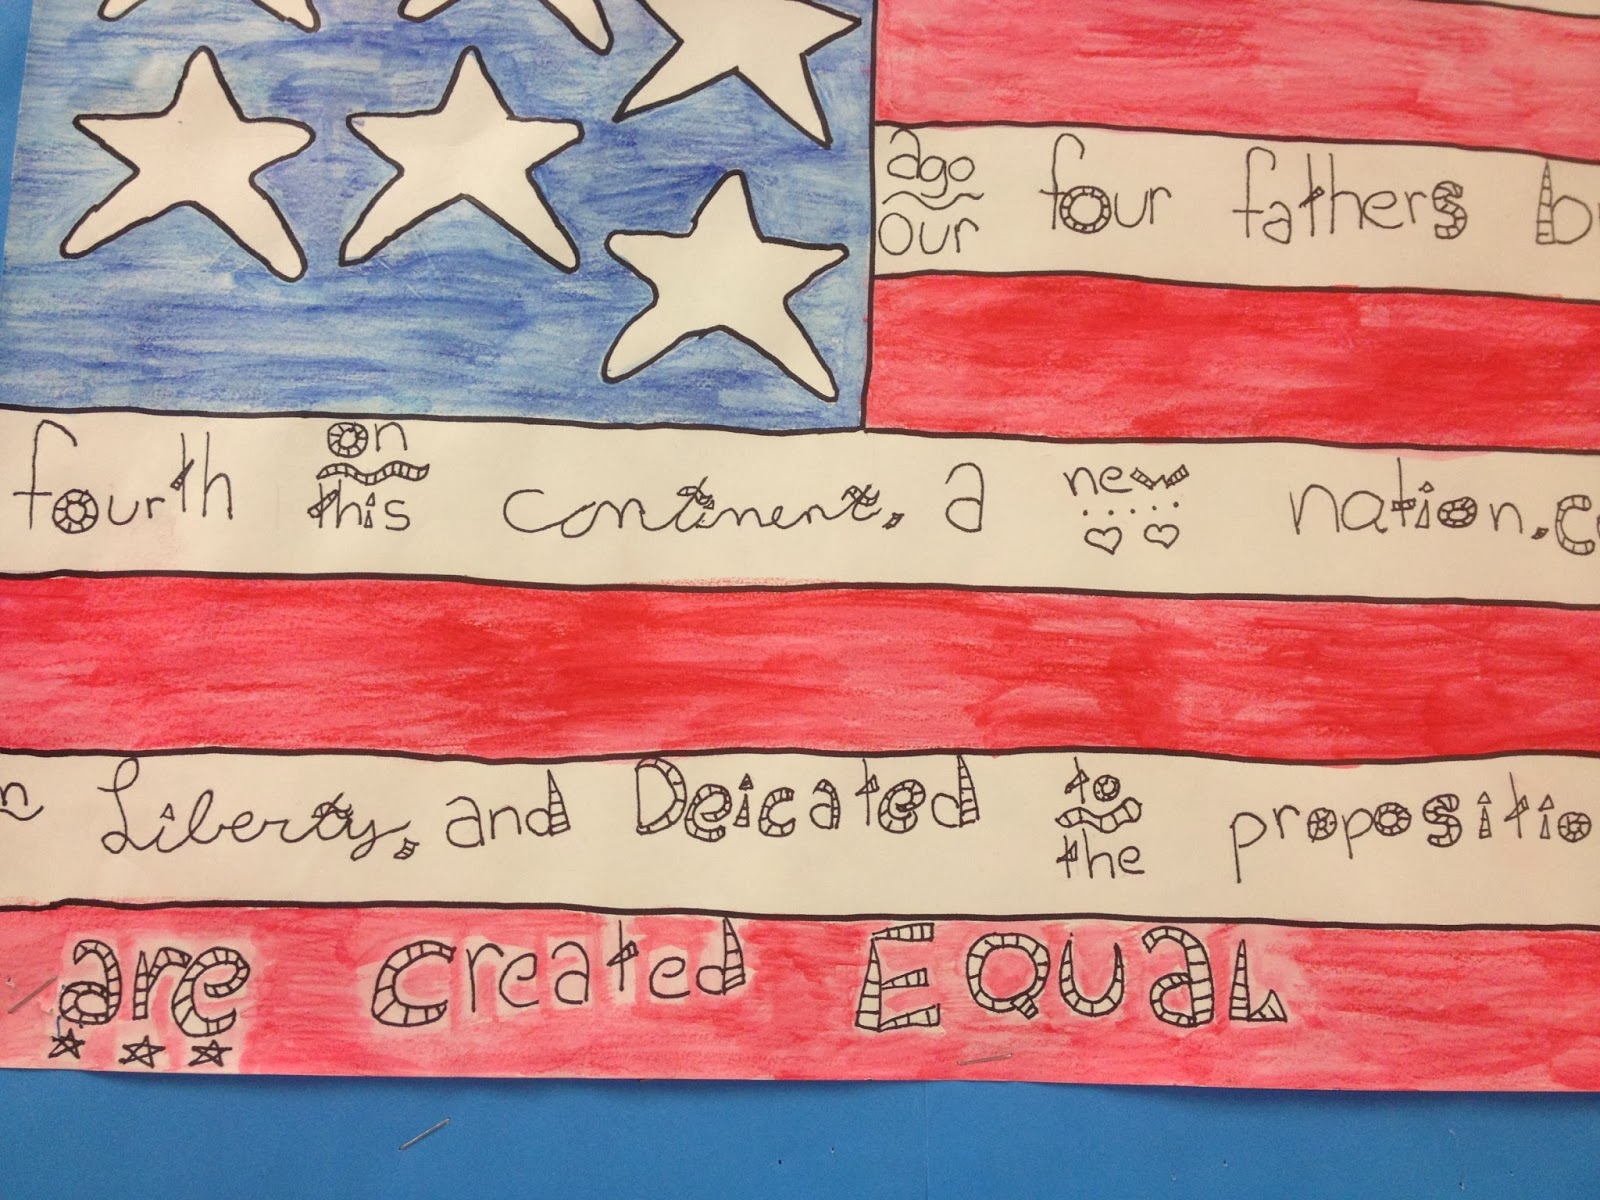 ago our four fathers b
fourth on this continent, a new nation, c
n Liberty, and Deicated to the propositio
are created EQUaL